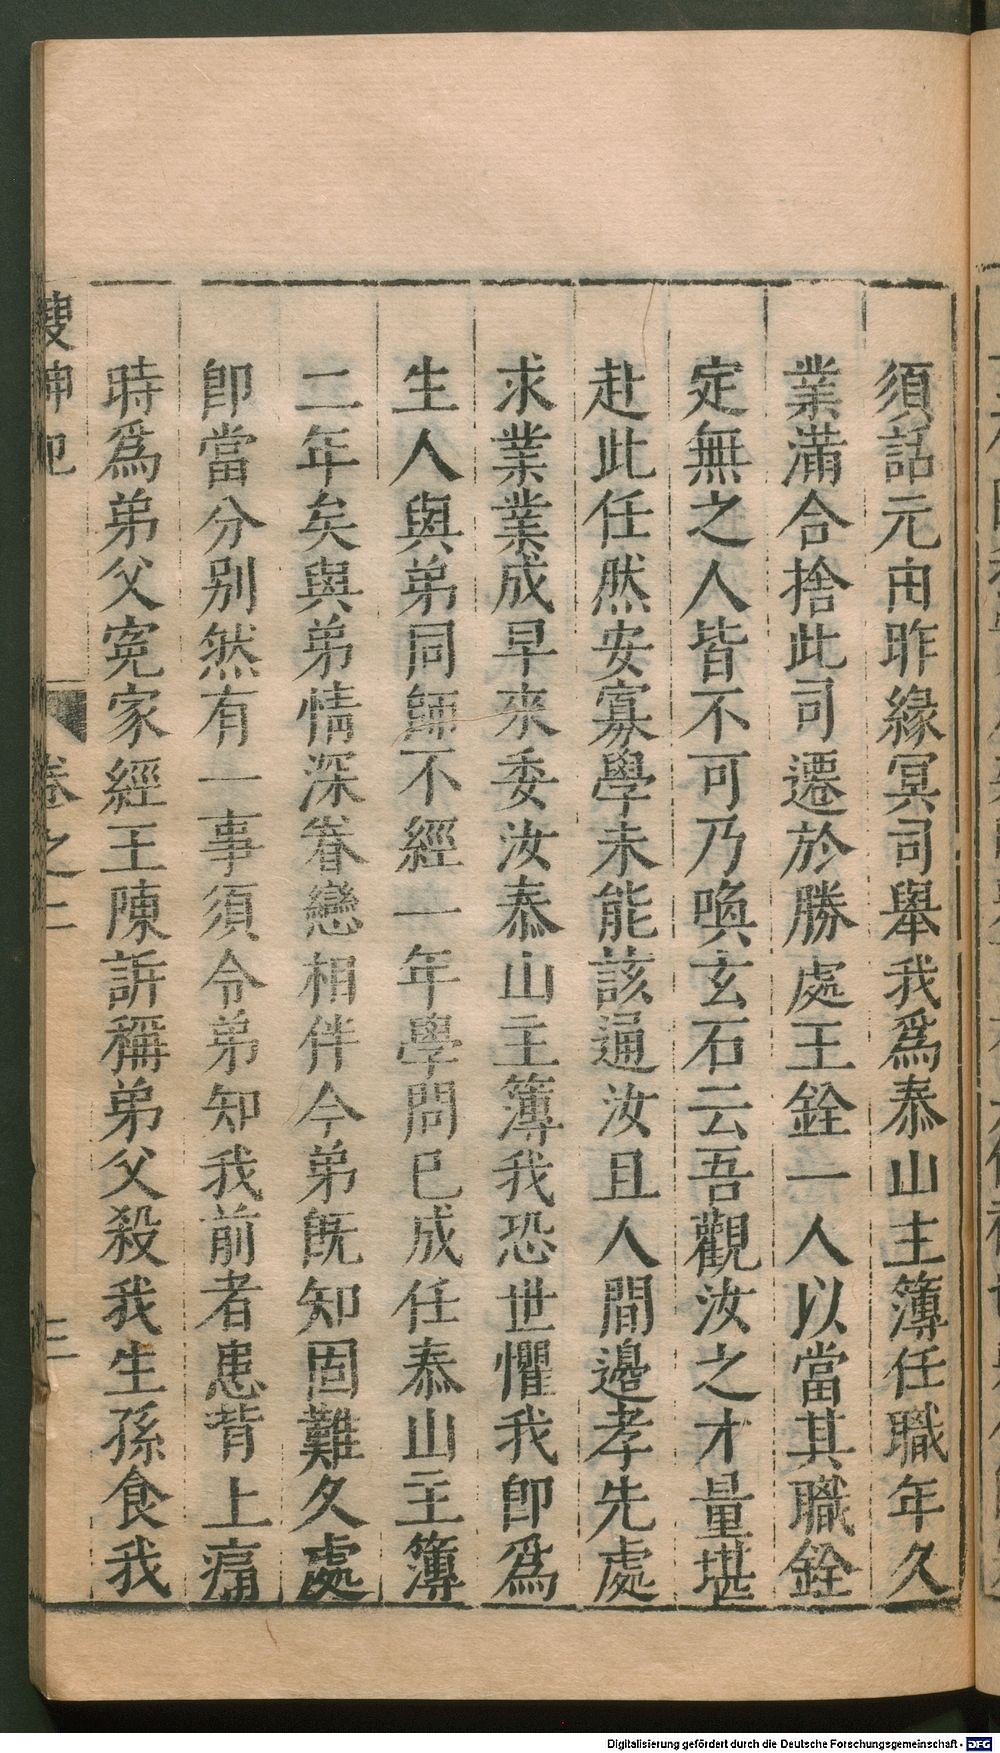 須話元由昨緣冥司舉我爲泰山主簿任職年久
業滿合捨此司遷於勝處王銓一人以當其職銓
定無之人皆不可乃喚玄石云吾觀汝之才量堪
赴此任然安寡學未能該通汝且人間邊孝先處
求業業成早來委汝泰山主簿我恐世懼我卽爲
生人與弟同師不經一年學問已成任泰山主簿
二年矣與弟情深眷戀相伴今弟旣知固難久處
卽當分別然有一事須令弟知我前者患背上痛
時爲弟父寃家經王陳訴稱弟父殺我生孫食我
搜神記 卷之二 三
Digitalisierung gefördert durch die Deutsche Forschungsgemeinschaft - DFG